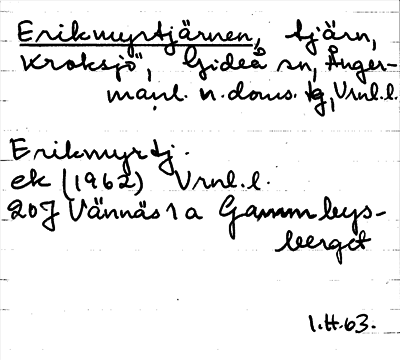 Erikmyrtjärnen, tjärn,
Kroksjö", Gideå sn, Ånger-
manl. n. doms. tg, Vrnl.l.
Erikmyrtj.
ek (1962) Vrnl.l.
20J Vännäs 1 a Gammbys-
berget
1.H.63.